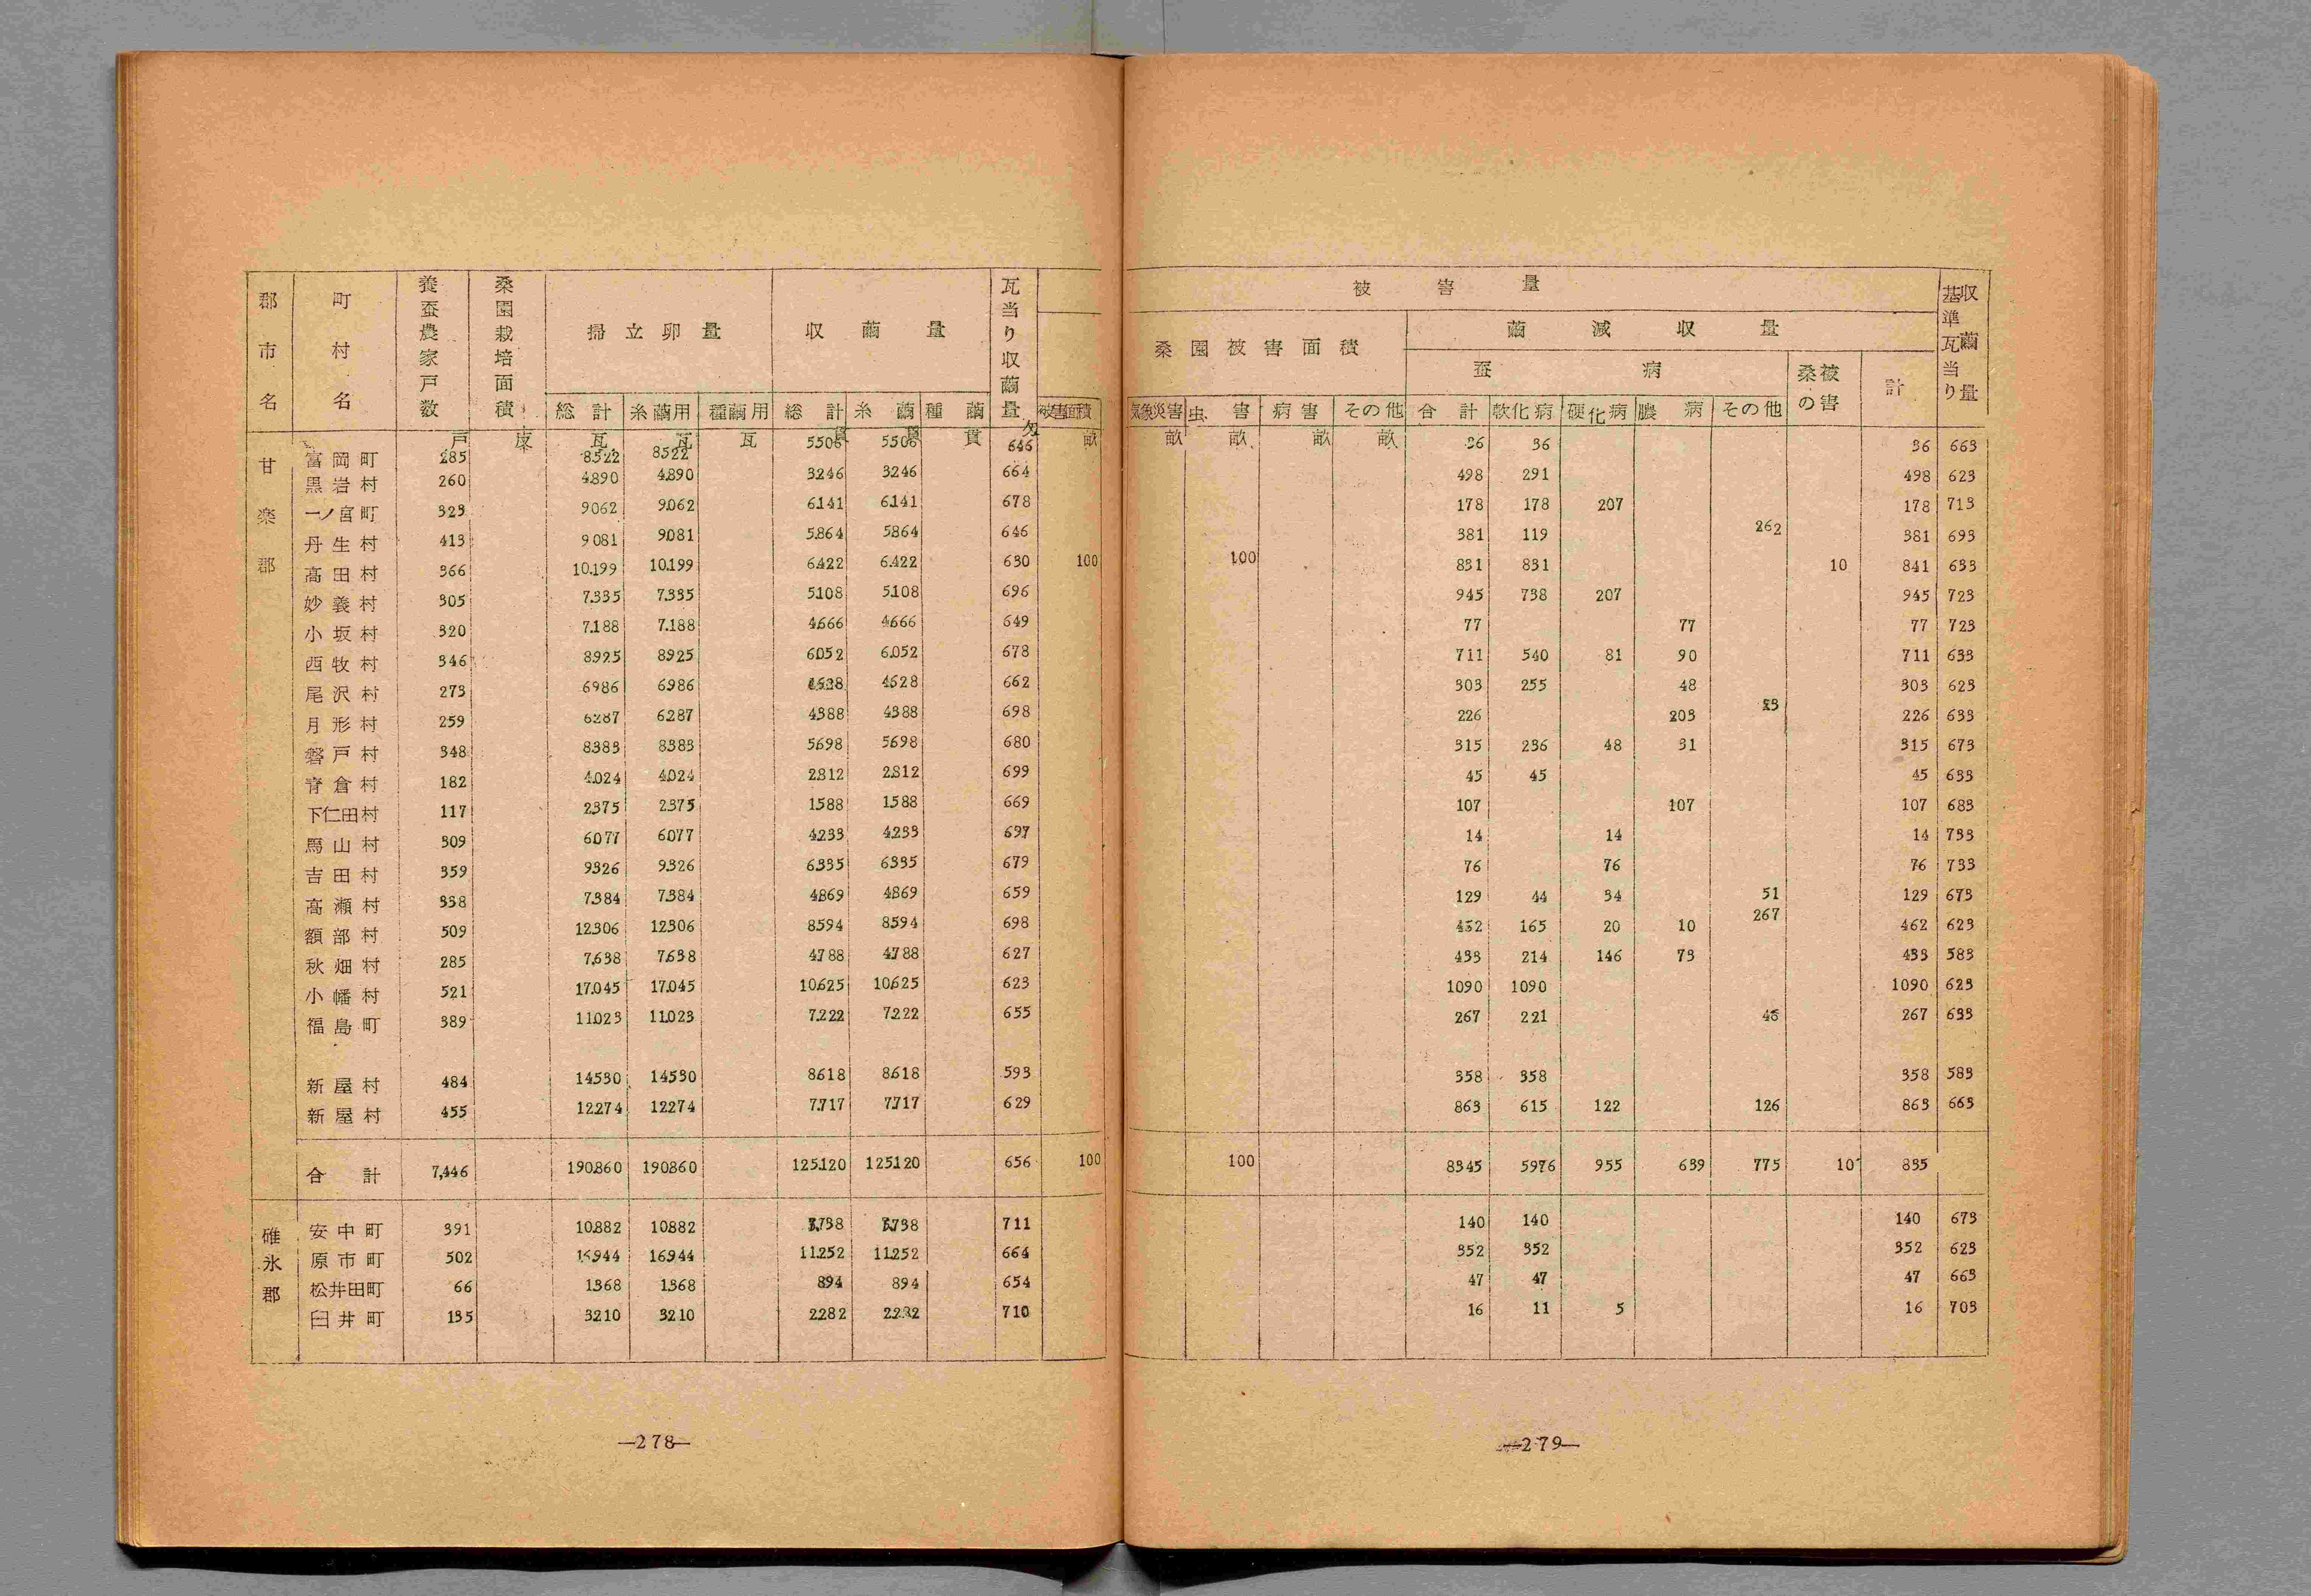 郡市名 町村名 養蚕農家戸数 桑園栽培面積 掃立卵量 収繭量 瓦当り収繭量 被害量 基準瓦当り収繭量
桑園被害面積 繭減収量
蚕病 桑被の害 計
総計 糸繭用 種繭用 総計 糸繭 種繭 被害面積 気象災害 虫害 病害 その他 合計 軟化病 硬化病 膿病 その他
戸 瓦 瓦 瓦 貫 貫 貫 匁 畝 畝 畝 畝 畝
甘楽郡
富岡町 285 8522 8522 5506 5506 646 36 36 36 663
黒岩村 260 4890 4890 3246 3246 664 498 291 498 623
一ノ宮町 323 9062 9062 6141 6141 678 178 178 207 178 713
丹生村 413 9081 9081 5864 5864 646 381 119 262 381 693
高田村 366 10.199 10.199 6422 6.422 630 100 100 831 831 10 841 633
妙義村 305 7.335 7.335 5108 5.108 696 945 738 207 945 723
小坂村 320 7.188 7.188 4666 4666 649 77 77 77 723
西牧村 346 8925 8925 6052 6.052 678 711 540 81 90 711 633
尾沢村 273 6986 6986 4628 662 303 255 48 303 623
月形村 259 6287 6287 4388 4388 698 226 203 23 226 633
磐戸村 348 8383 8383 5698 5698 680 315 236 48 31 315 673
青倉村 182 4024 4024 2812 2812 699 45 45 45 633
下仁田村 117 2375 2375 1588 1588 669 107 107 107 683
馬山村 309 6077 6077 4233 4233 697 14 14 14 733
吉田村 359 9326 9326 6335 6335 679 76 76 76 733
高瀬村 338 7384 7384 4869 4869 659 129 44 34 51 129 673
額部村 509 12306 12306 8594 8594 698 165 20 10 267 462 623
秋畑村 285 7638 7638 4788 4788 627 433 214 146 73 433 583
小幡村 521 17045 17.045 10625 10625 623 1090 1090 1090 623
福島町 389 11023 11023 7222 7222 655 267 221 46 267 633
新屋村 484 14530 14530 8618 8618 593 358 358 358 583
新屋村 455 12274 12274 7.717 7717 629 863 615 122 126 863 663
合計 7,446 190860 190860 125120 125120 656 100 100 8345 5976 955 639 775 10 835
碓氷郡
安中町 391 10882 10882 7.738 7.738 711 140 140 140 673
原市町 502 16944 16944 11252 11252 664 352 352 352 623
松井田町 66 1368 1368 894 894 654 47 47 47 663
臼井町 135 3210 3210 2282 2282 710 16 11 5 16 703
—278—
—279—